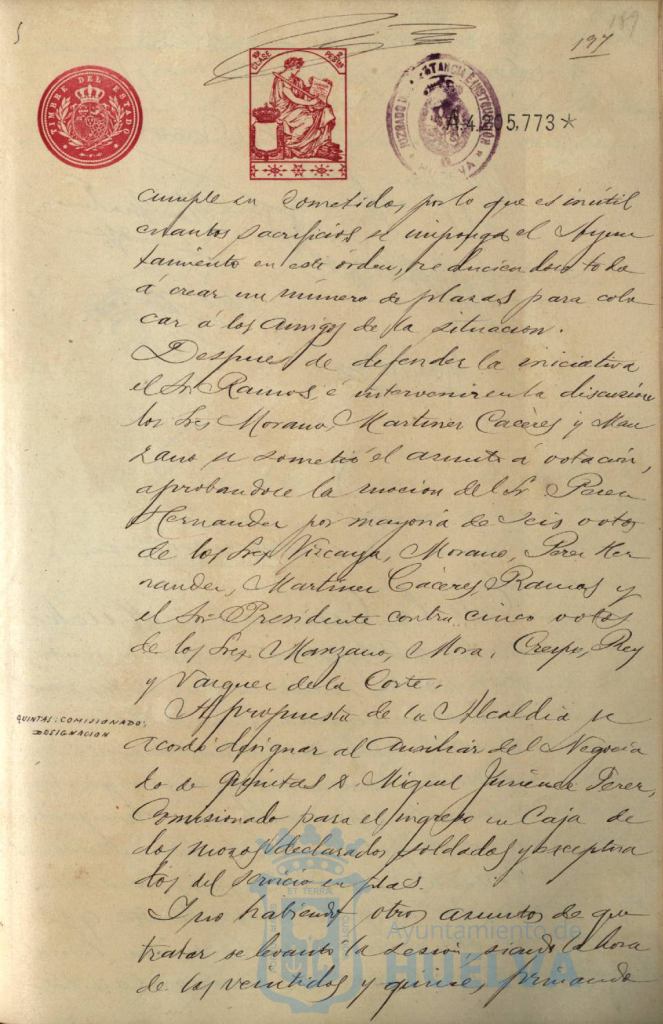 189
197
TIMBRE DEL ESTADO
CLASE
PESETA
JUZGADO D
STANCIA E INSTRUCCION
HUELVA
A4.205,773*
cumple su cometido, por lo que es inútil
cuantos sacrificios se imponga el Ayun
tamiento en este órden, reduciendose todo
á crear un número de plazas para colo
car á los amigos de la situacion.
Despues de defender la iniciativa
el Sr. Ramos, é intervenir en la discusion
los Sres Morano, Martinez Cáceres y Man
zano se sometió el asunto á votación,
aprobandose la mocion del Sr. Perez
Hernandez por mayoría de seis votos
de los Sres Vizcaya, Morano, Perez Her
nandez, Martinez Cáceres Ramos y
el Sr. Presidente contra cinco votos
de los Sres. Manzano, Mora, Crespo, Rey
y Vazquez de la Corte.
QUINTAS: COMISIONADO,
DESIGNACION
A propuesta de la Alcaldia se
acordó designar al Auxiliar del Negocia
do de Quintas D. Miguel Jimenez Perez,
Comisionado para el ingreso en Caja de
los mozos declarados soldados y exceptua
dos del servicio en filas.
Y no habiendo otros asuntos de que
tratar se levantó la sesión, siendo la hora
de las veintidos y quince, firmando
ET TERRA
Ayuntamiento de
HUELVA